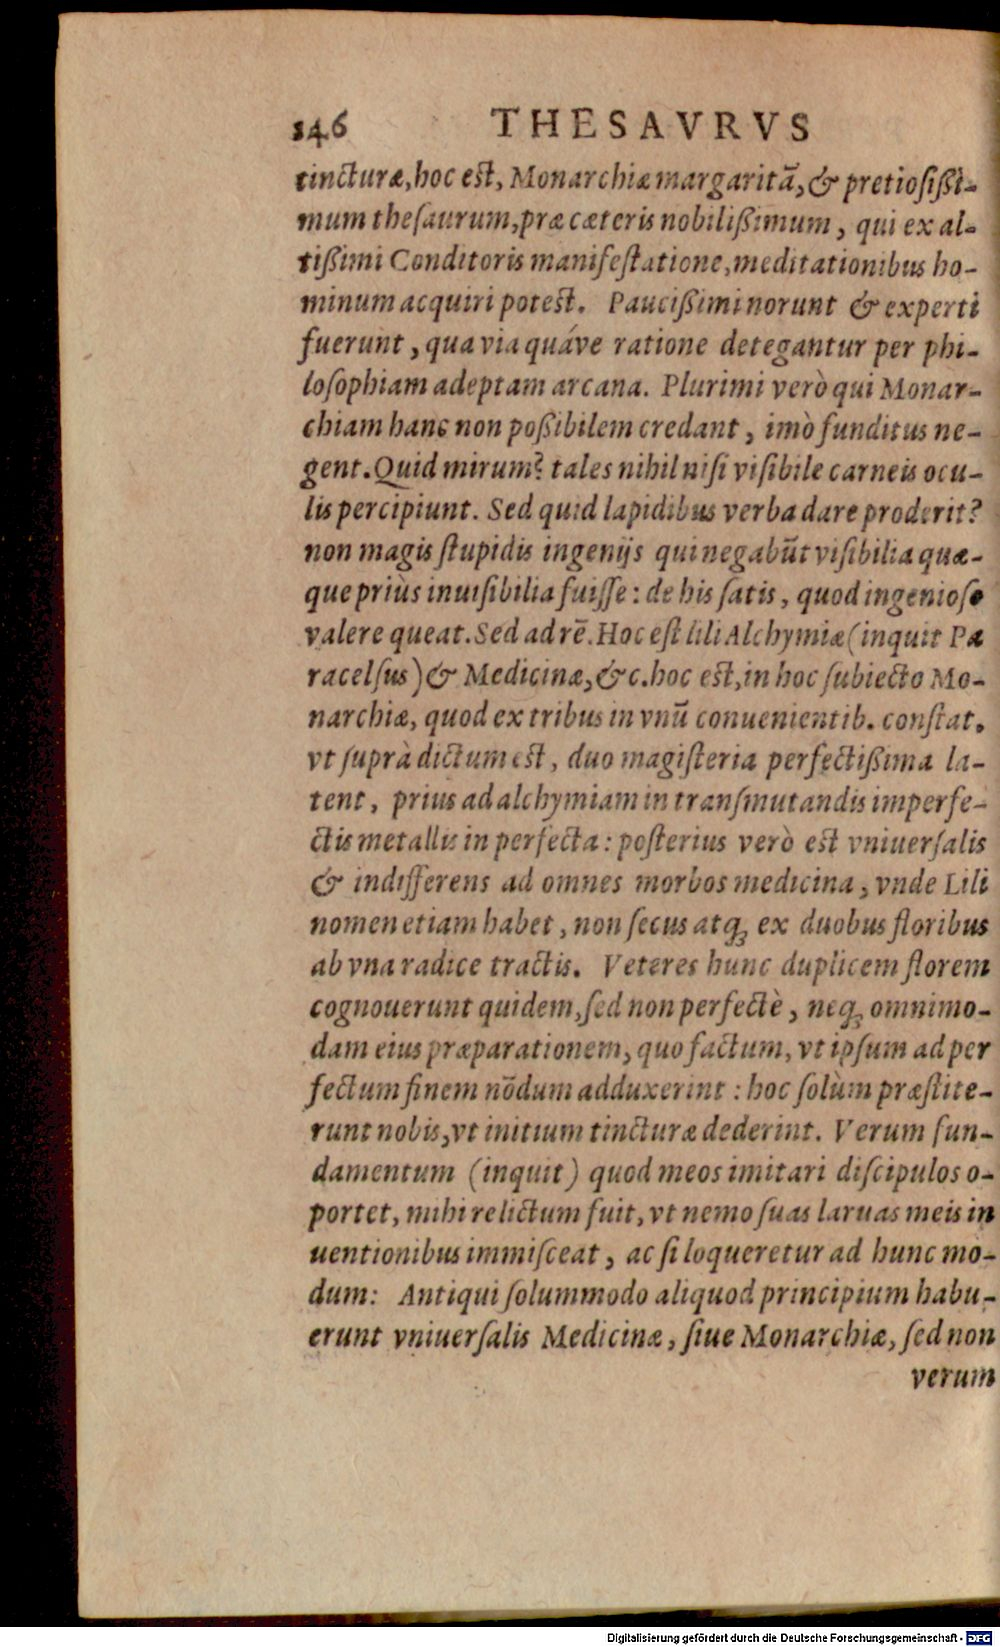 146 THESAVRVS
tincturæ, hoc est, Monarchiæ margaritã, & pretiosißi-
mum thesaurum, præ cæteris nobilißimum, qui ex al-
tißimi Conditoris manifestatione, meditationibus ho-
minum acquiri potest. Paucißimi norunt & experti
fuerunt, qua via quáve ratione detegantur per phi-
losophiam adeptam arcana. Plurimi verò qui Monar-
chiam hanc non poßibilem credant, imò funditus ne-
gent. Quid mirum? tales nihil nisi visibile carneis ocu-
lis percipiunt. Sed quid lapidibus verba dare proderit?
non magis stupidis ingenijs qui negabũt visibilia quæ-
que priùs inuisibilia fuisse: de his satis, quod ingeniose
valere queat. Sed ad rẽ. Hoc est lili Alchymiæ (inquit Pa
racelsus) & Medicinæ, &c. hoc est, in hoc subiecto Mo-
narchiæ, quod ex tribus in vnũ conuenientib. constat.
vt suprà dictum est, duo magisteria perfectißima la-
tent, prius ad alchymiam in transmutandis imperfe-
ctis metallis in perfecta: posterius verò est vniuersalis
& indifferens ad omnes morbos medicina, vnde Lili
nomen etiam habet, non secus atq; ex duobus floribus
ab vna radice tractis. Veteres hunc duplicem florem
cognouerunt quidem, sed non perfectè, neq; omnimo-
dam eius præparationem, quo factum, vt ipsum ad per
fectum finem nõdum adduxerint: hoc solùm præstite-
runt nobis, vt initium tincturæ dederint. Verum fun-
damentum (inquit) quod meos imitari discipulos o-
portet, mihi relictum fuit, vt nemo suas laruas meis in
uentionibus immisceat, ac si loqueretur ad hunc mo-
dum: Antiqui solummodo aliquod principium habu-
erunt vniuersalis Medicinæ, siue Monarchiæ, sed non
verum
Digitalisierung gefördert durch die Deutsche Forschungsgemeinschaft - DFG